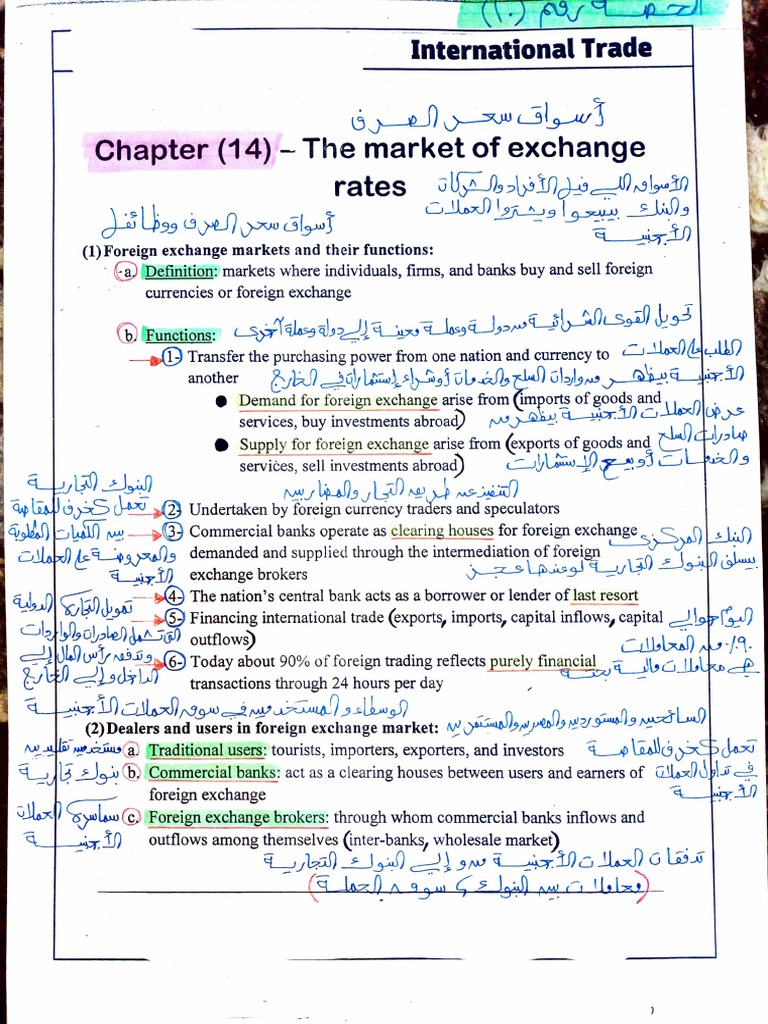 الحصة رقم (١٠)
International Trade
أسواق سعر الصرف
Chapter (14) – The market of exchange
rates
الأسواق اللي فيها الأفراد والشركات
والبنوك بيبيعوا ويشتروا العملات
الأجنبية
أسواق سعر الصرف ووظائفها
(1) Foreign exchange markets and their functions:
a. Definition: markets where individuals, firms, and banks buy and sell foreign
currencies or foreign exchange
تحويل القوى الشرائية من دولة وعملة معينة إلى دولة وعملة أخرى
b. Functions:
1- Transfer the purchasing power from one nation and currency to
another
الطلب على العملات
الأجنبية بيظهر من واردات السلع والخدمات أو شراء إستثمارات في الخارج
● Demand for foreign exchange arise from (imports of goods and
services, buy investments abroad)
عرض العملات الأجنبية بيظهر من
● Supply for foreign exchange arise from (exports of goods and
services, sell investments abroad)
صادرات السلع
والخدمات أو بيع الإستثمارات
التنفيذ عن طريق التجار والمضاربين
2- Undertaken by foreign currency traders and speculators
البنوك التجارية
تعمل كغرف للمقاصة
بين الكميات المطلوبة
والمعروضة على العملات
الأجنبية
3- Commercial banks operate as clearing houses for foreign exchange
demanded and supplied through the intermediation of foreign
exchange brokers
البنك المركزي
بيسلف البنوك التجارية لو عندها عجز
4- The nation's central bank acts as a borrower or lender of last resort
تمويل التجارة الدولية
التي تشمل الصادرات والواردات
وتدفق رأس المال إلى
الداخل وإلى الخارج
5- Financing international trade (exports, imports, capital inflows, capital
outflows)
اليوم حوالي
٩٠٪ من المعاملات
هي معاملات مالية بحتة
6- Today about 90% of foreign trading reflects purely financial
transactions through 24 hours per day
الوسطاء والمستخدمين في سوق العملات الأجنبية
(2) Dealers and users in foreign exchange market:
السائحين والمستوردين والمصدرين والمستثمرين
مستخدمين تقليديين
a. Traditional users: tourists, importers, exporters, and investors
تعمل كغرف للمقاصة
في تداول العملات
الأجنبية
بنوك تجارية
b. Commercial banks: act as a clearing houses between users and earners of
foreign exchange
سماسرة العملات
الأجنبية
c. Foreign exchange brokers: through whom commercial banks inflows and
outflows among themselves (inter-banks, wholesale market)
تدفقات العملات الأجنبية من وإلى البنوك التجارية
(معاملات بين البنوك، سوق الجملة)